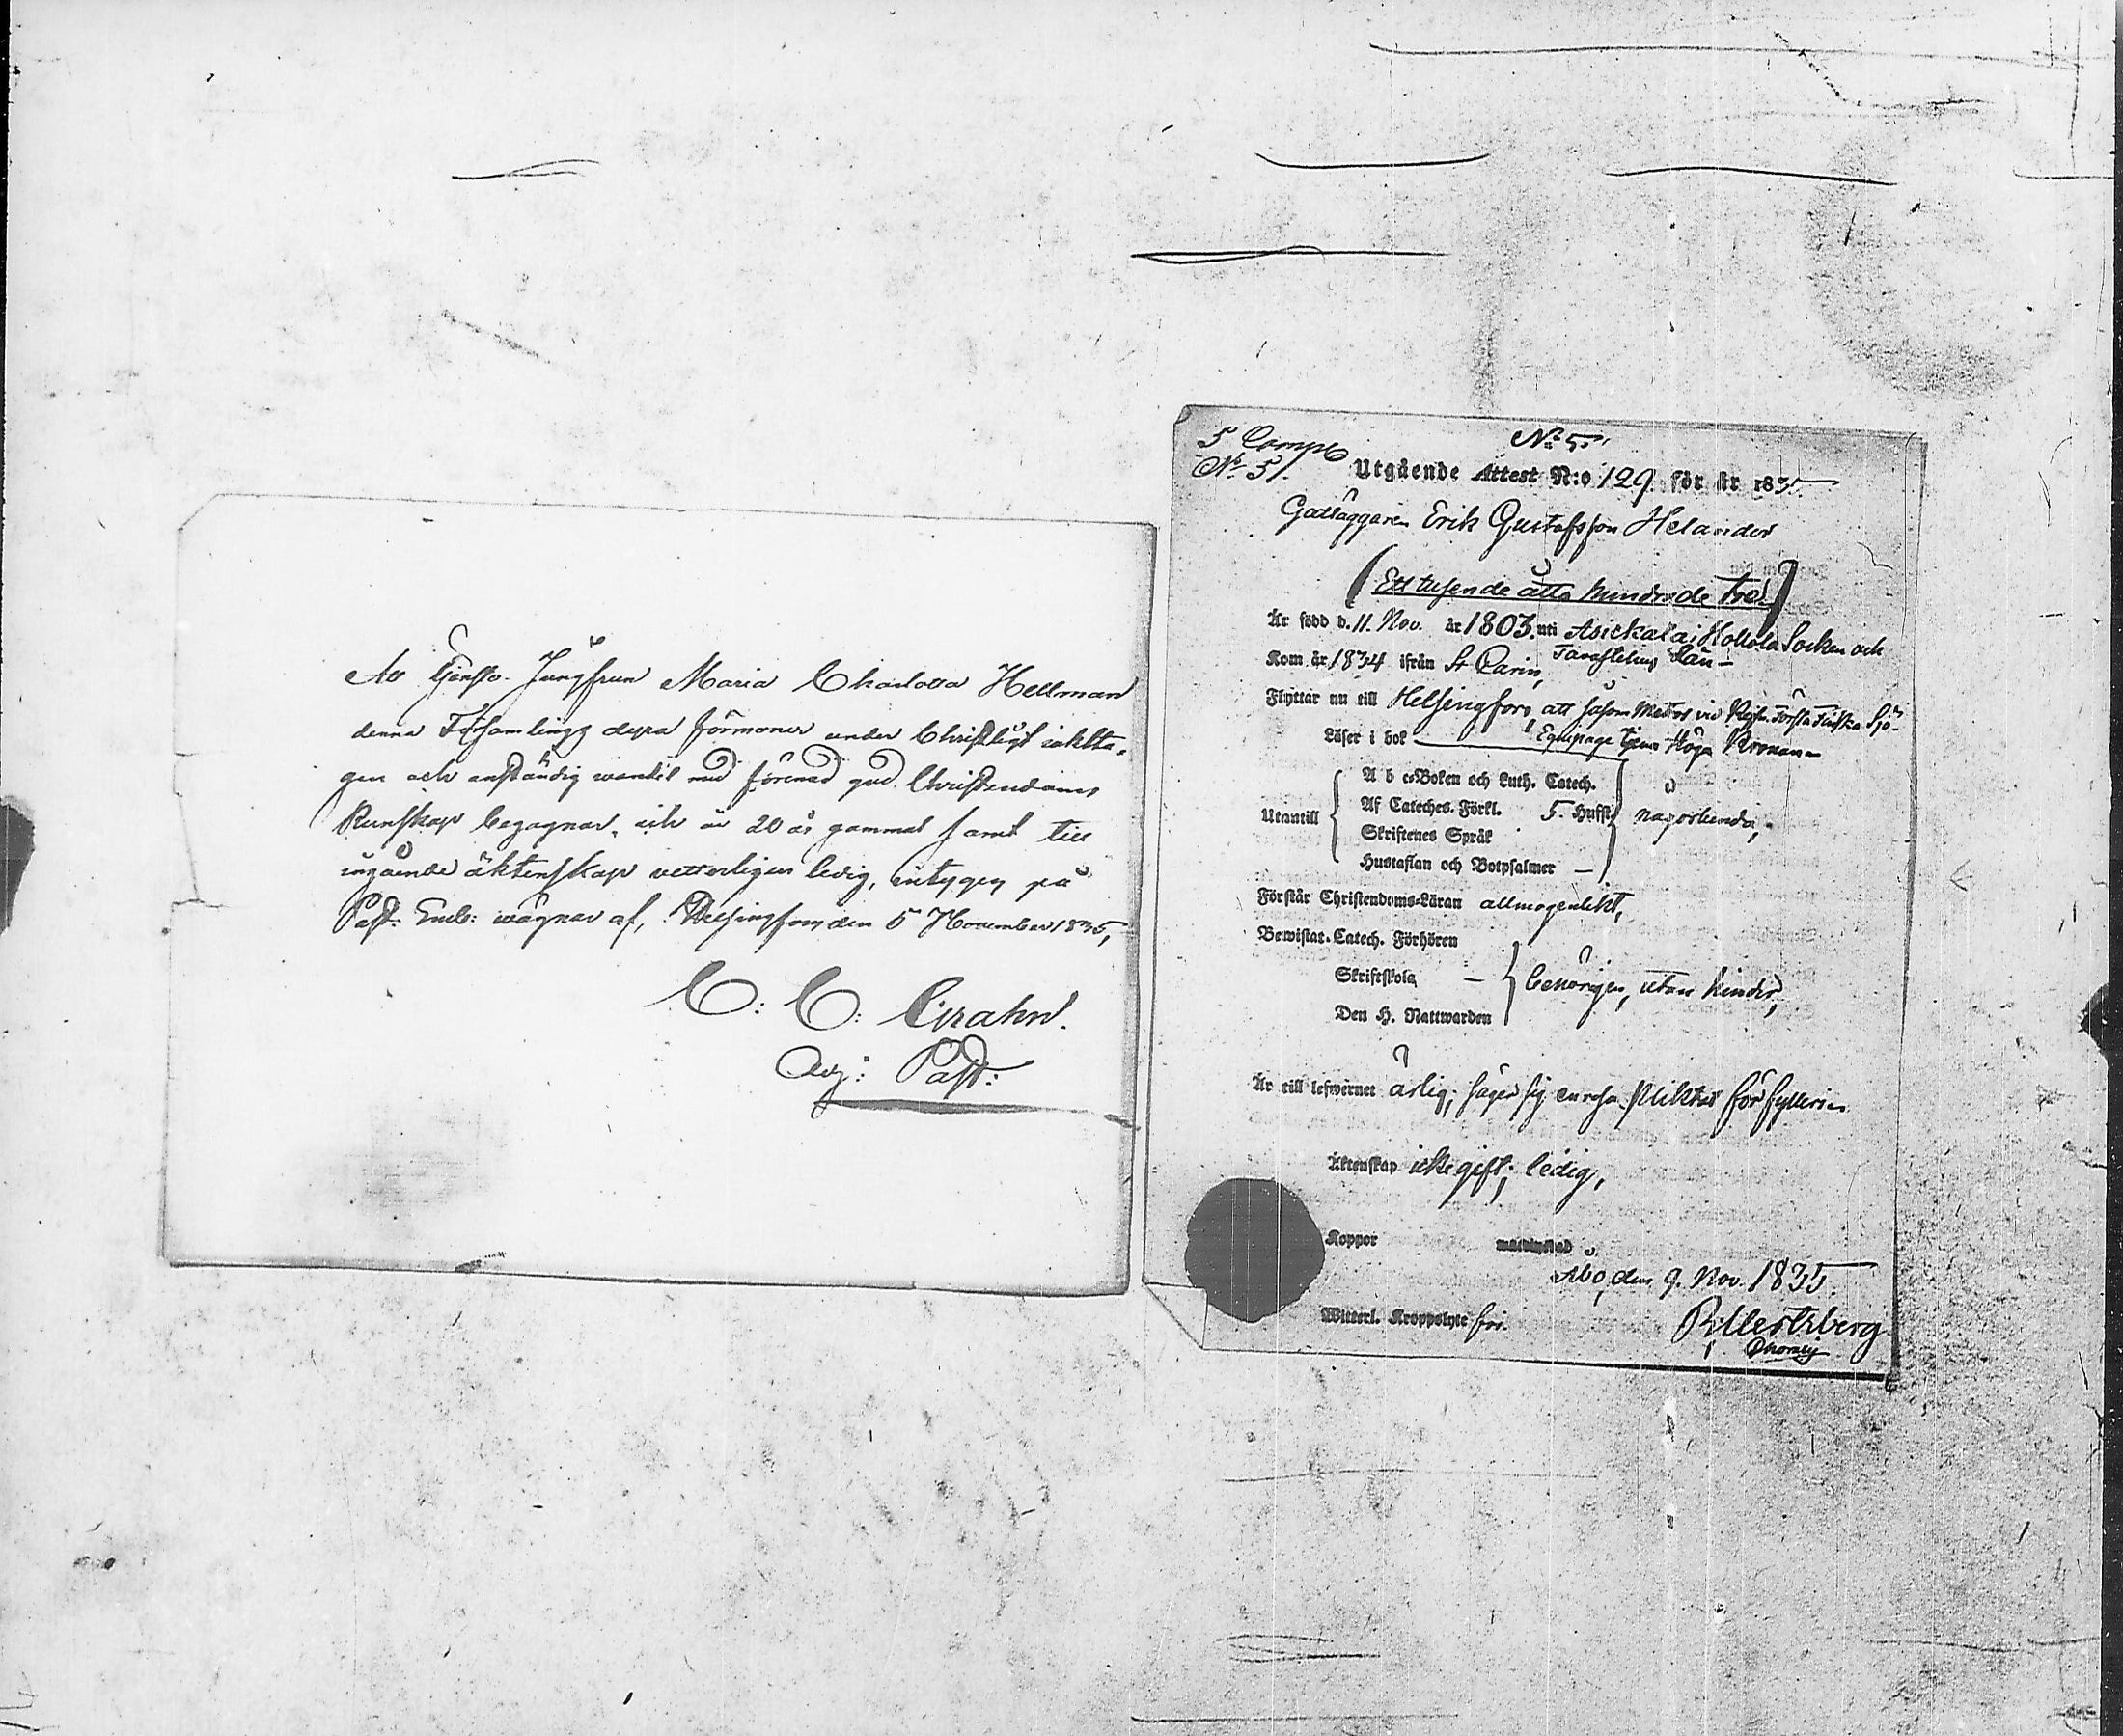 Att Tjenste Jungfrun Maria Charlotta Hellman
denna Församlings dyra förmoner under Christligt iaktta-
gen och anständig wandel med förenad god Christendoms
Kunskap begagnar, och är 20 år gammal samt till
ingående äktenskap vetterligen ledig, intygas på
Past: Embs: wägnar af, Helsingfors den 5 November 1835,
C: C: Grahn.
Adj: Past:
5 Comp
No 51.
No 5.
Utgående Attest N:o 129 för år 1835
Gatläggaren Erik Gustafsson Helander
(Ett tusende åtta hundrade tre)
Är född d. 11. Nov. år 1803. uti Asickala i Hollola Socken och
Tavastehus Län
Kom år 1834 ifrån St Carins,
Flyttar nu till Helsingfors, att såsom Matros vid Kejs. Första Finska Sjö-
Equipage tjena Höga Kronan
Läser i bok
Utantill
A b c-Boken och Luth. Catech.
Af Cateches. Förkl. 5. Hufst.
Skriftenes Språk
Hustaflan och Botpsalmer
någorlunda,
Förstår Christendoms-Läran allmogenlikt,
Bewistat Catech. Förhören
Skriftskola
Den H. Nattwarden
behörigen, utan hinder,
Är till lefwernet ärlig, säger sig en resa pliktat för fylleri
Äktenskap icke gift, ledig,
Koppor
Åbo, den 9. Nov. 1835.
Witterl. Kroppslyte fri.